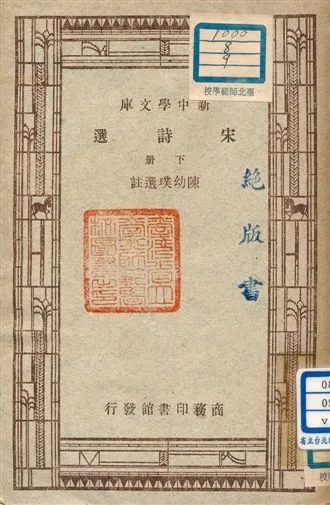 1000
8
9
臺北師範學校
庫文學中新
選詩宋
冊下
註選璞幼陳
絕版書
行發館書印務商
省立台北